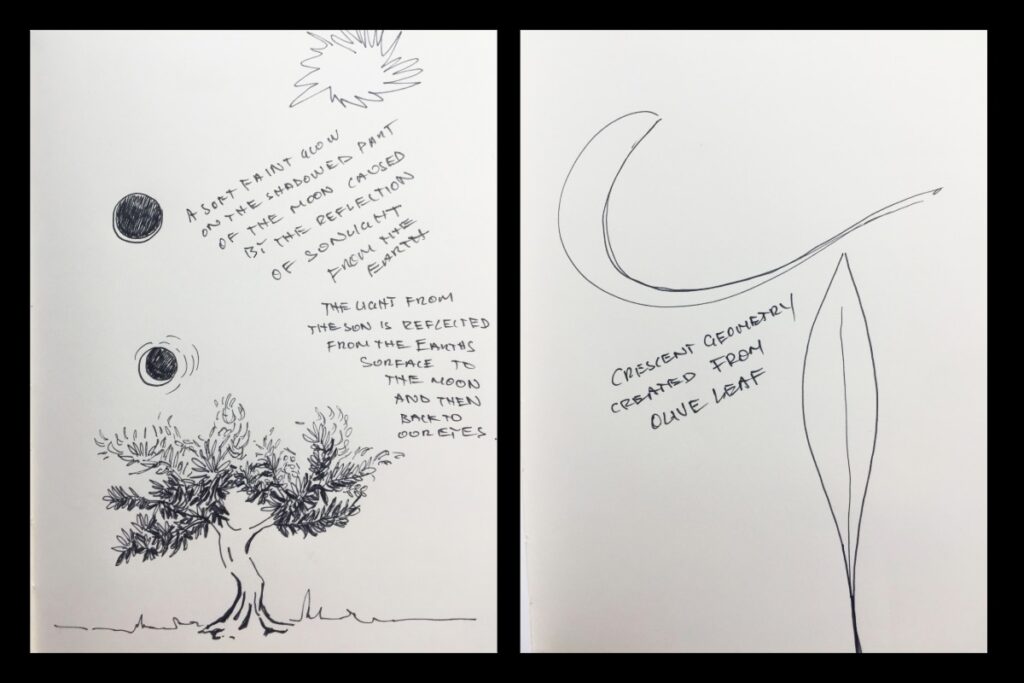 A SOFT FAINT GLOW
ON THE SHADOWED PART
OF THE MOON CAUSED
BY THE REFLECTION
OF SUNLIGHT
FROM THE
EARTH
THE LIGHT FROM
THE SUN IS REFLECTED
FROM THE EARTHS
SURFACE TO
THE MOON
AND THEN
BACK TO
OUR EYES.
CRESCENT GEOMETRY
CREATED FROM
OLIVE LEAF